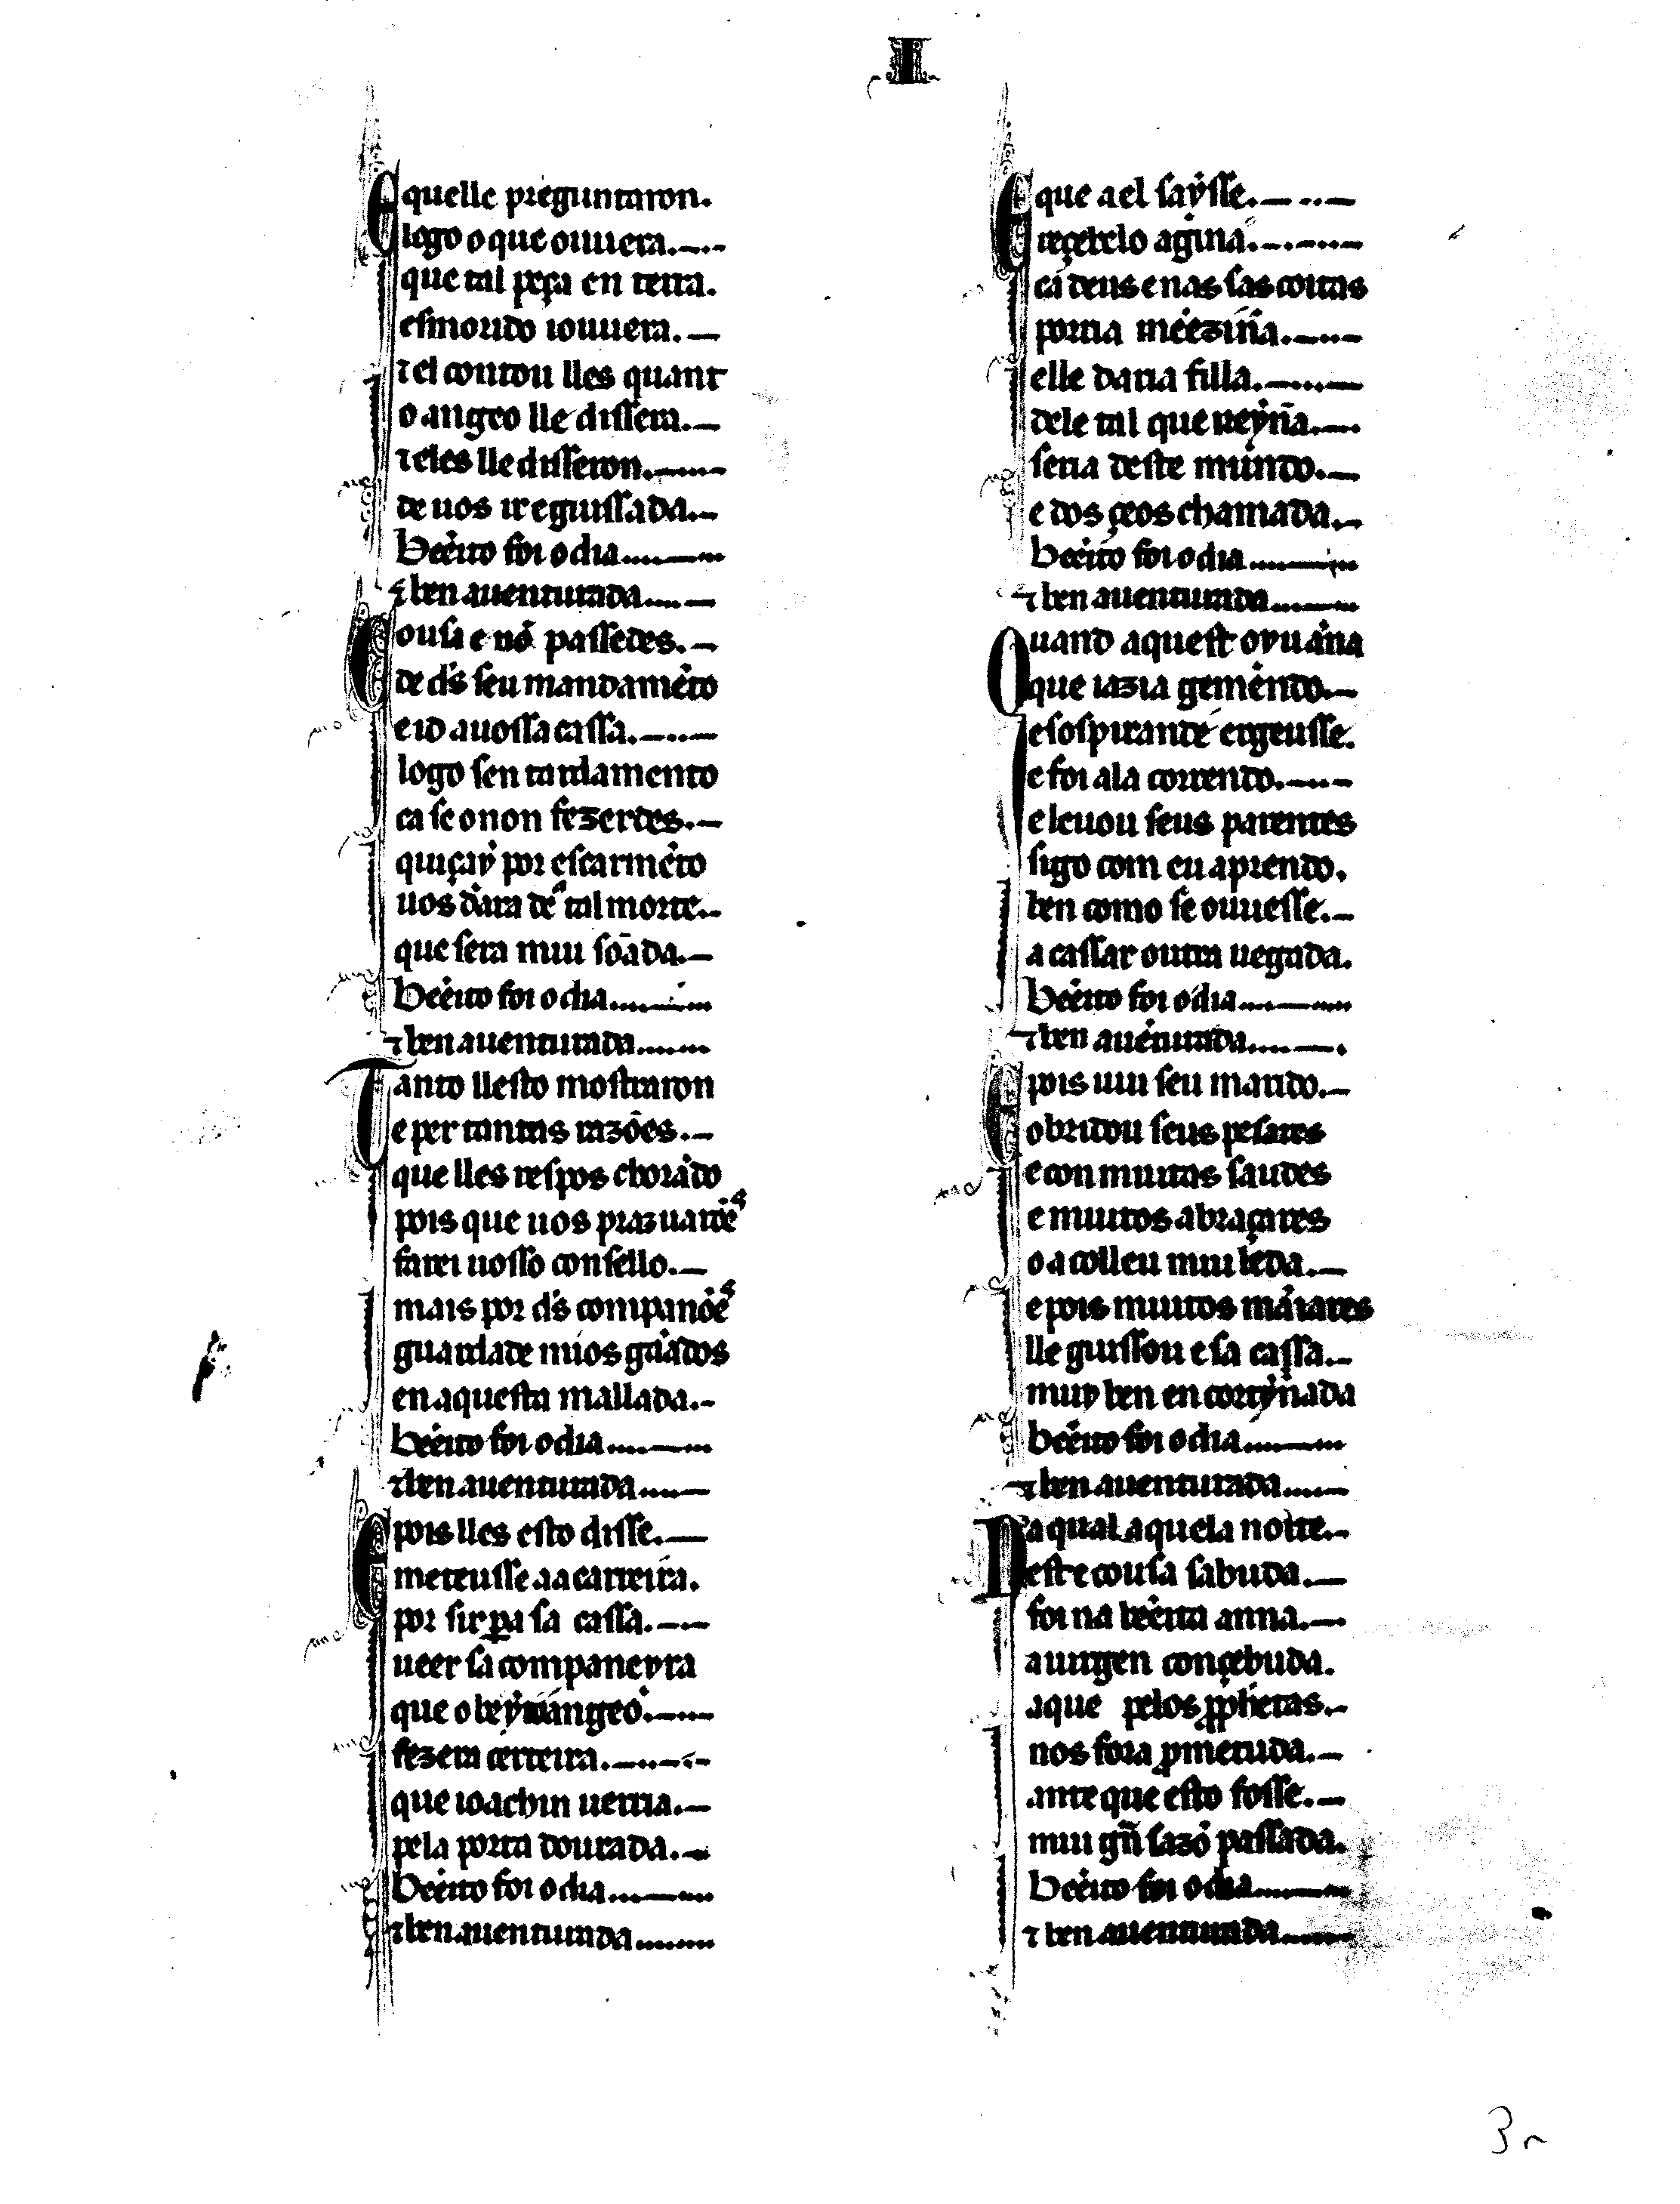 I
E quelle preguntaron.
logo o que ouuera.
que tal peça en terra.
esmorido iouuera.
⁊ el contou lles quant
o angeo lle dissera.
⁊ eles lle disseron.
de uos ir e guissada.
Bẽeito foi o dia
⁊ ben auenturada
Cousa e nõ passedes.
de d̃s seu mandamẽto
e id a uossa cassa.
logo sen tardamento
ca se o non fezerdes.
quiçay por escarmẽto
uos dara dẽ tal morte.
que sera mui sõada.
Bẽeito foi o dia
⁊ ben auenturada
Tanto ll esto mostraron
e per tantas razões.
que lles respos chorãdo
pois que uos praz uarões
farei uosso consello.
mais por d̃s companões
guardade mios gãados
en aquesta mallada.
Bẽeito foi o dia
⁊ ben auenturada
E pois lles esto disse.
meteusse aa carreira.
por sir pa sa cassa.
ueer sa companeyra
que o bẽyto angeo.
fezera certeira.
que ioachin uerria.
pela porta dourada.
Bẽeito foi o dia
⁊ ben auenturada
E que a el saysse.
reçebelo agỹa.
ca deus enas sas coitas
porria mẽeziña.
e lle daria filla.
dele tal que reyña.
seria deste mundo.
e dos çeos chamada.
Bẽeito foi o dia
⁊ ben auenturada
Quand aquest oyu ãna
que iazia gemendo.
e sospirand e ergeusse.
e foi ala correndo.
e leuou seus parentes
sigo com eu aprendo.
ben como se ouuesse.
a cassar outra uegada.
Bẽeito foi o dia
⁊ ben auẽturada
E pois uiu seu marido.
obridou seus pesares
e con muitas saudes
e muitos abraçares
o acolleu mui leda.
e pois muitos mãiares
lle guissou e sa cassa.
muy ben encortỹada
bẽeito foi o dia
⁊ ben auenturada
Na qual aquela noite.
est e cousa sabuda.
foi na bẽeita anna.
a uirgen conçebuda.
a que pelos prophetas.
nos fora prometuda.
ante que esto fosse.
mui grã sazõ passada.
Bẽeito foi o dia
⁊ ben auenturada
3r